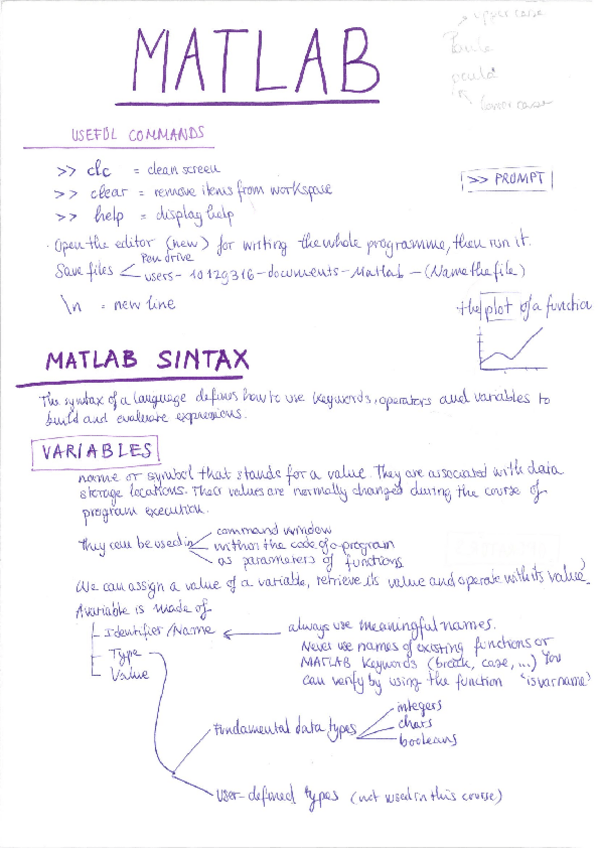 MATLAB
uppercase
lowercase
USEFUL COMMANDS
>> clc = clean screen
>> clear = remove items from workspace
>> help = display help
>> PROMPT
· Open the editor (new) for writing the whole programme, then run it.
Save files
Pen drive
users - 10129316 - documents - Matlab - (Name the file)
\n = new line
the plot of a function
MATLAB SINTAX
The syntax of a language defines how to use keywords, operators and variables to
build and evaluate expressions.
VARIABLES
name or symbol that stands for a value. They are associated with data
storage locations. Their values are normally changed during the course of
program execution.
They can be used in
command window
within the code of a program
as parameters of functions
We can assign a value of a variable, retrieve its value and operate with its value.
A variable is made of
Identifier/Name
Type
Value
always use meaningful names.
Never use names of existing functions or
MATLAB keywords (break, case, ...) You
can verify by using the function 'isvarname'
Fundamental data types
integers
chars
booleans
User-defined types (not used in this course)